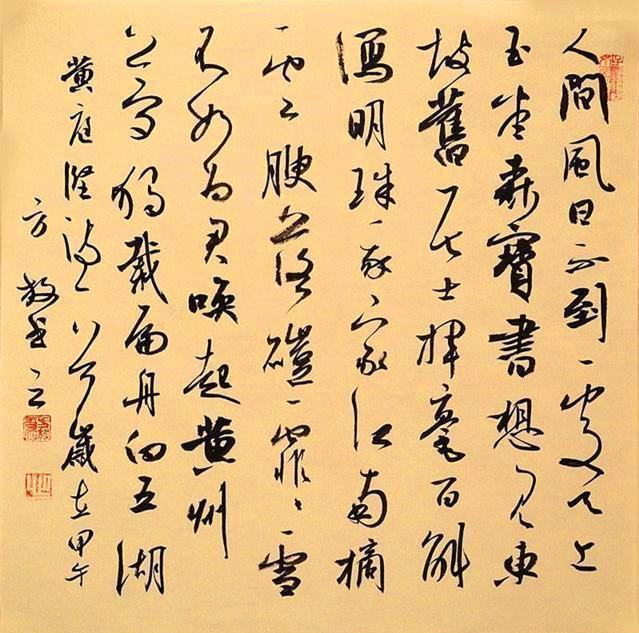 人間風日不到處天上
玉堂森寶書想見東
坡舊居士揮毫百斛
瀉明珠我家江南摘
雲腴落磑霏〻雪
不如為君喚起黃州
夢獨載扁舟向五湖
黃庭堅詩一首歲在甲午
方書